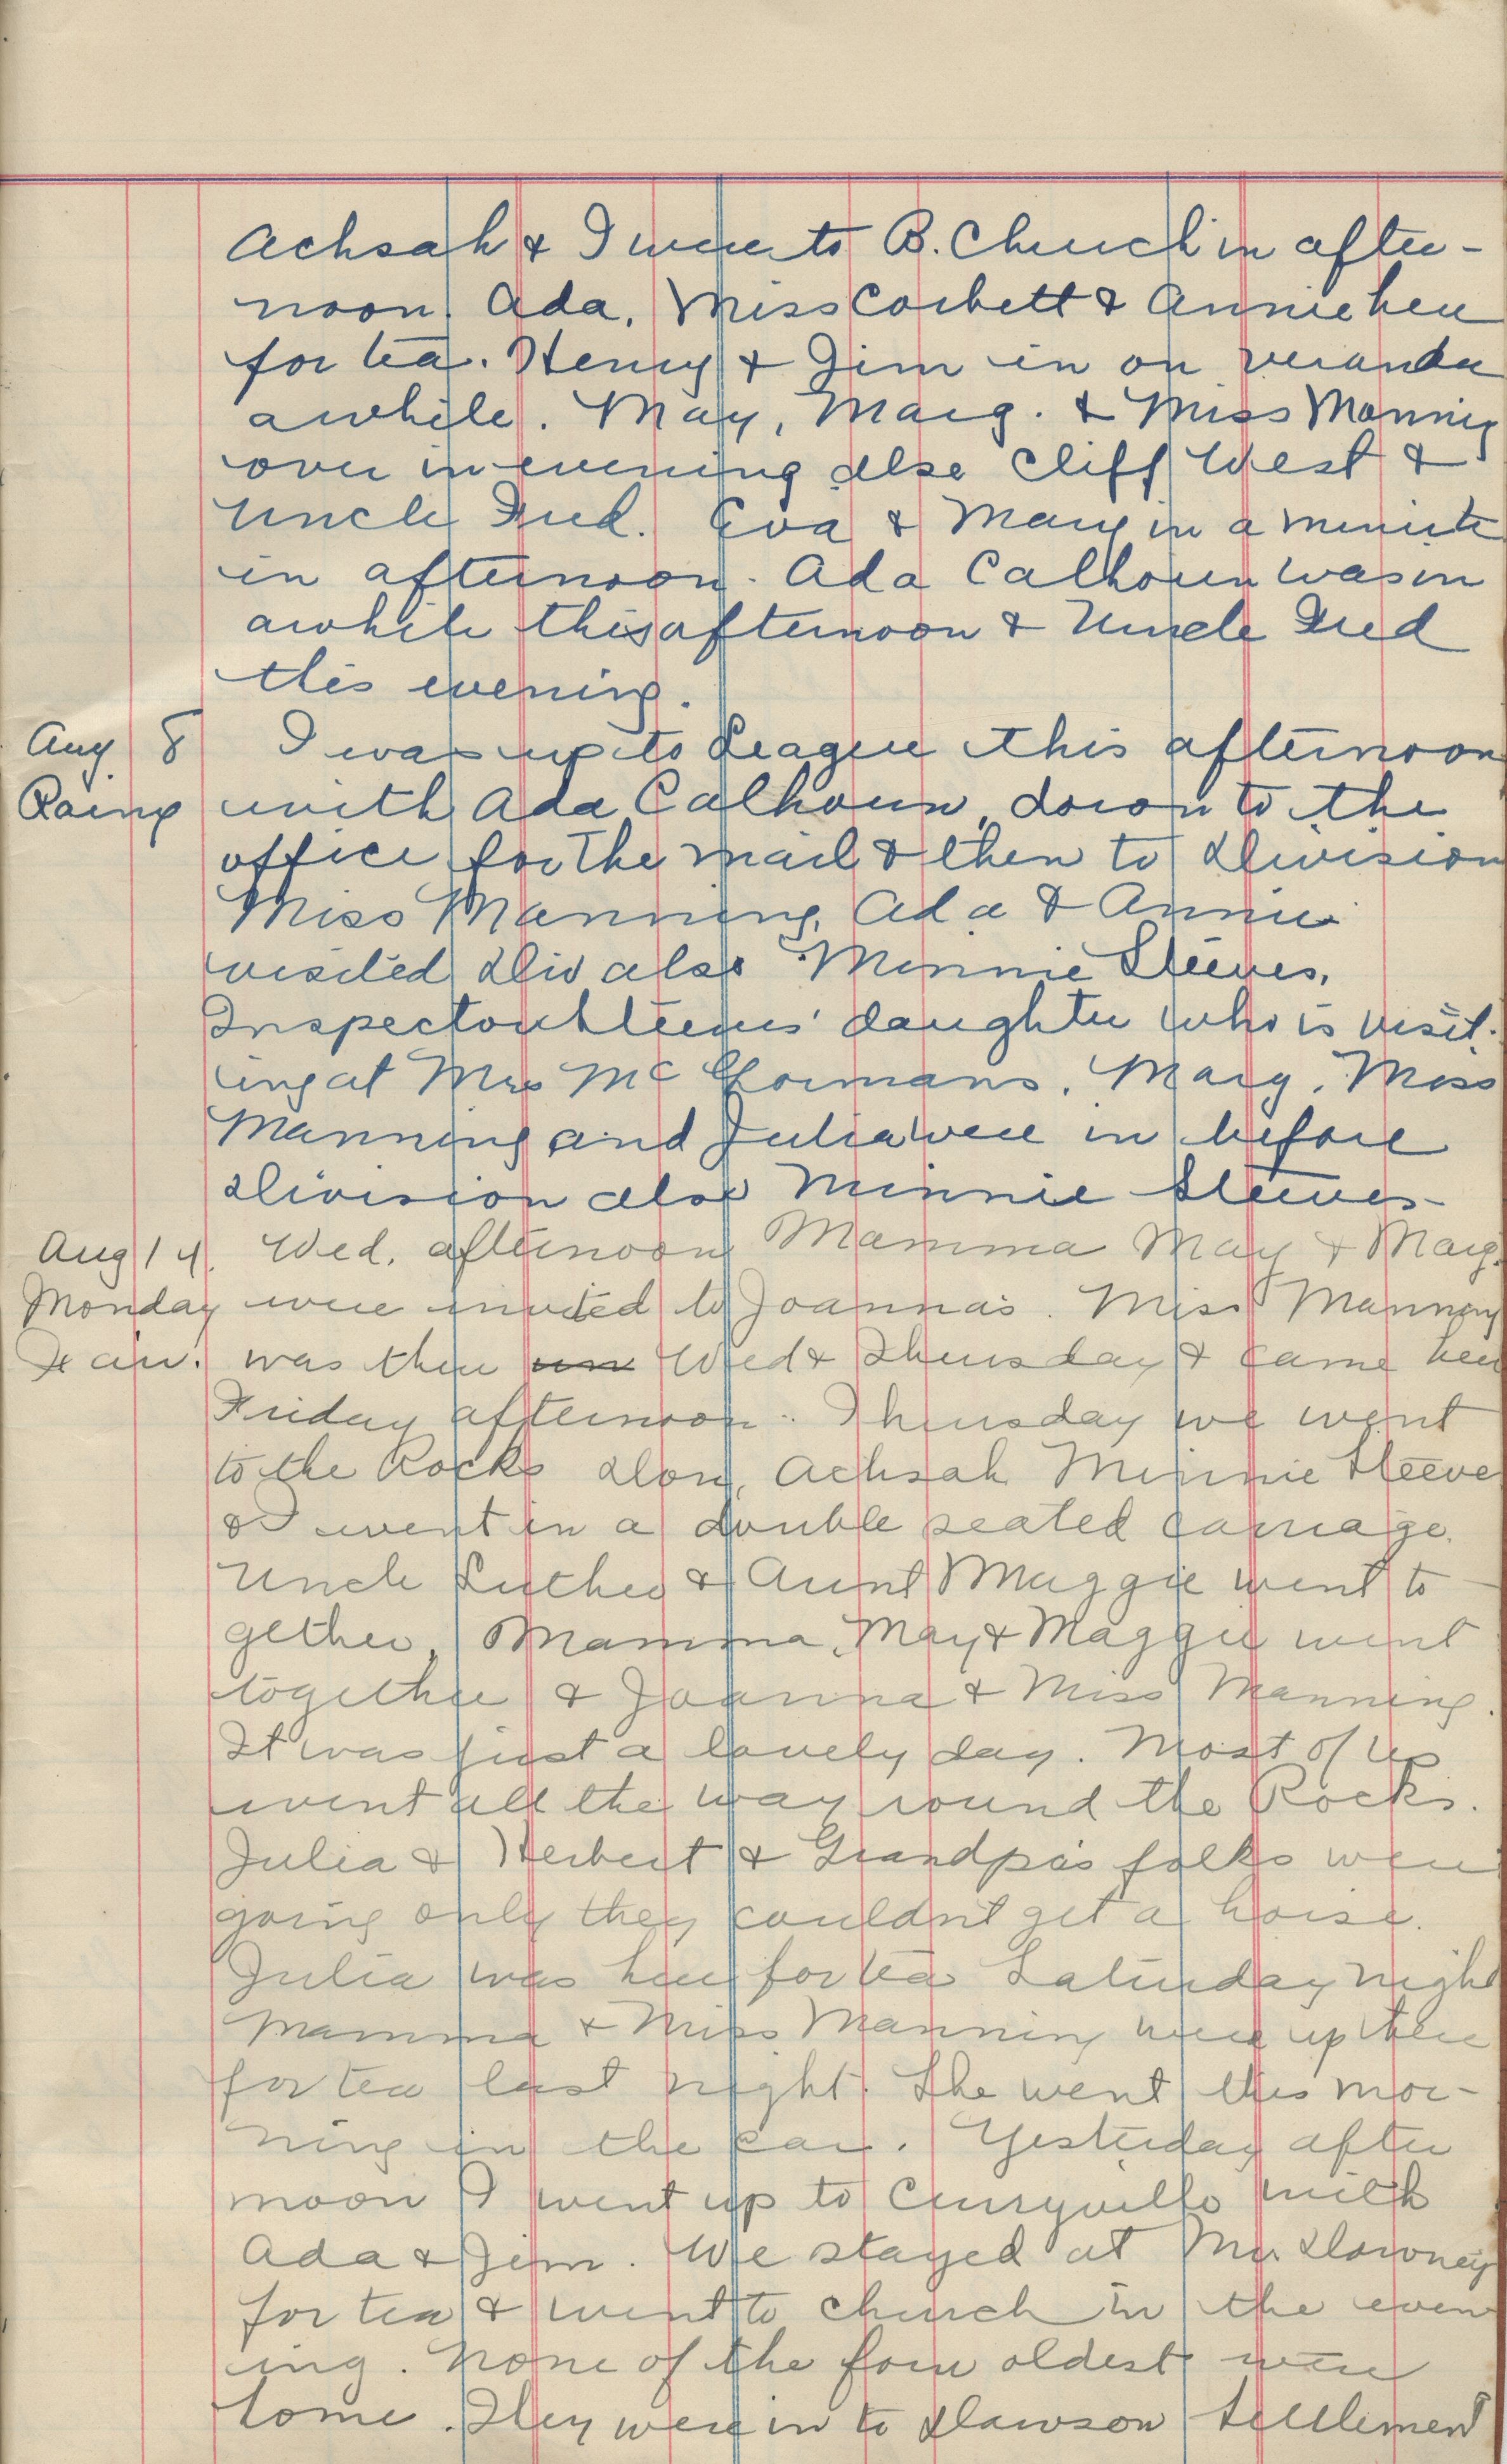 Achsah & I were to B. Church in after-
noon. Ada, Miss Corbett & Annie here
for tea. Henry & Jim in on veranda
awhile. May, Marg. & Miss Manning
over in evening also Cliff West &
Uncle Fred. Eva & Mary in a minute
in afternoon. Ada Calhoun was in
awhile this afternoon & Uncle Fred
this evening.
Aug 8 I was up to League this afternoon
Rainy with Ada Calhoun, down to the
office for the mail & then to Division
Miss Manning, Ada & Annie
visited Div also Minnie Steeves,
Inspector Steeves' daughter who is visit-
ing at Mrs McGormans. Marg, Miss
Manning and Julia were in before
Division also Minnie Steeves-
Aug 14. Wed. afternoon Mamma May & Marg.
Monday were invited to Joanna's. Miss Manning
Fair. was there Wed & Thursday & came here
Friday afternoon. Thursday we went
to the Rocks Don, Achsah Minnie Steeve
& I went in a double seated carriage.
Uncle Luther & Aunt Maggie went to-
gether, Mamma, May & Maggie went
together & Joanna & Miss Manning.
It was just a lovely day. Most of us
went all the way round the Rocks.
Julia & Herbert & Grandpa's folks were
going only they couldn't get a horse.
Julia was here for tea Saturday night
Mamma & Miss Manning were up there
for tea last night. She went this mor-
ning in the car. Yesterday after
noon I went up to Curryville with
Ada & Jim. We stayed at Mr. Downey
for tea & went to church in the even
ing. None of the four oldest were
home. They were in to Dawson Settlement